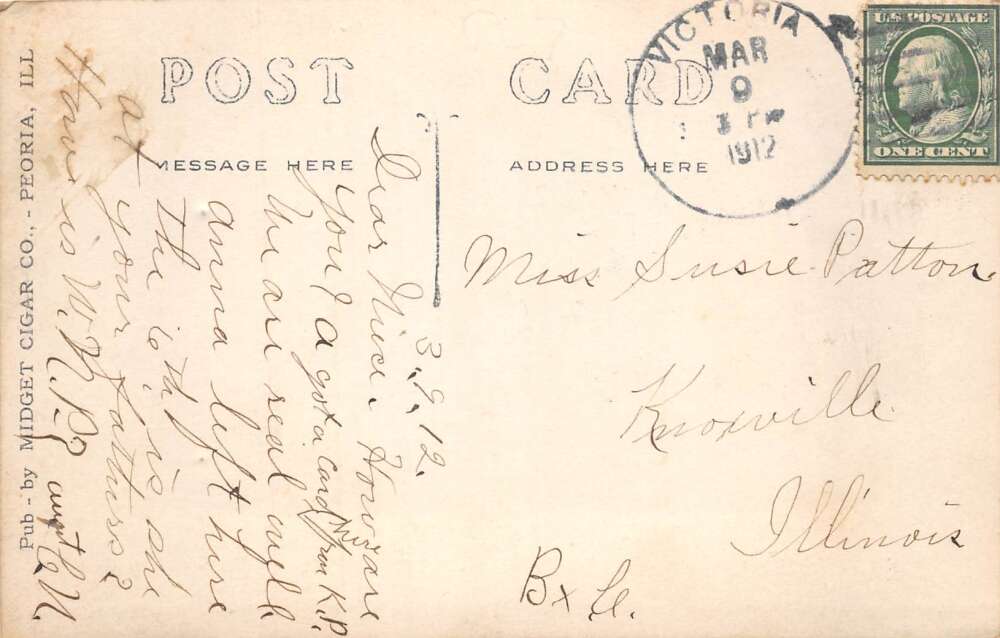 POST CARD
MESSAGE HERE
ADDRESS HERE
VICTORIA
MAR
9
1912
U.S. POSTAGE
ONE CENT
Pub - by MIDGET CIGAR CO., - PEORIA, ILL
3.9.12.
Dear Niece. How are
you I a got a card from K.P.
We are real
anna left here
the 6th is she
at your fathers?
How is W.N.P?
Miss Susie Patton.
Knoxville
Illinois
Bx